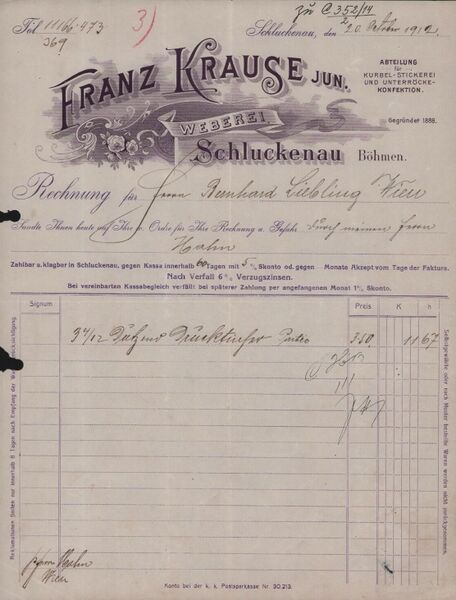 zu C 352/14
2
Fol. 11166·473
369
3)
Schluckenau, den 20. October 1912
FRANZ KRAUSE JUN.
WEBEREI.
Schluckenau Böhmen.
ABTEILUNG
für
KURBEL-STICKEREI
UND UNTERRÖCKE-
KONFEKTION.
Gegründet 1888.
Rechnung für Herrn Bernhard Liebling Wien
Sandte Ihnen heute auf Ihre w. Ordre für Ihre Rechnung u. Gefahr durch meinen Herrn
Hahn
Zahlbar u. klagbar in Schluckenau, gegen Kassa innerhalb 60 Tagen mit 5 % Skonto od. gegen Monate Akzept vom Tage der Faktura.
Nach Verfall 6% Verzugszinsen.
Bei vereinbarten Kassabegleich verfällt bei späterer Zahlung per angefangenen Monat 1% Skonto.
Signum Preis K h
3 4/12 Dutzend 3.50 11 67
Reklamationen finden nur innerhalb 8 Tagen nach Empfang der Ware Berücksichtigung.
Selbstgewählte oder nach Muster bestellte Waren werden nicht zurückgenommen.
Hahn
Wien
Konto bei der k. k. Postsparkasse Nr. 30.213.